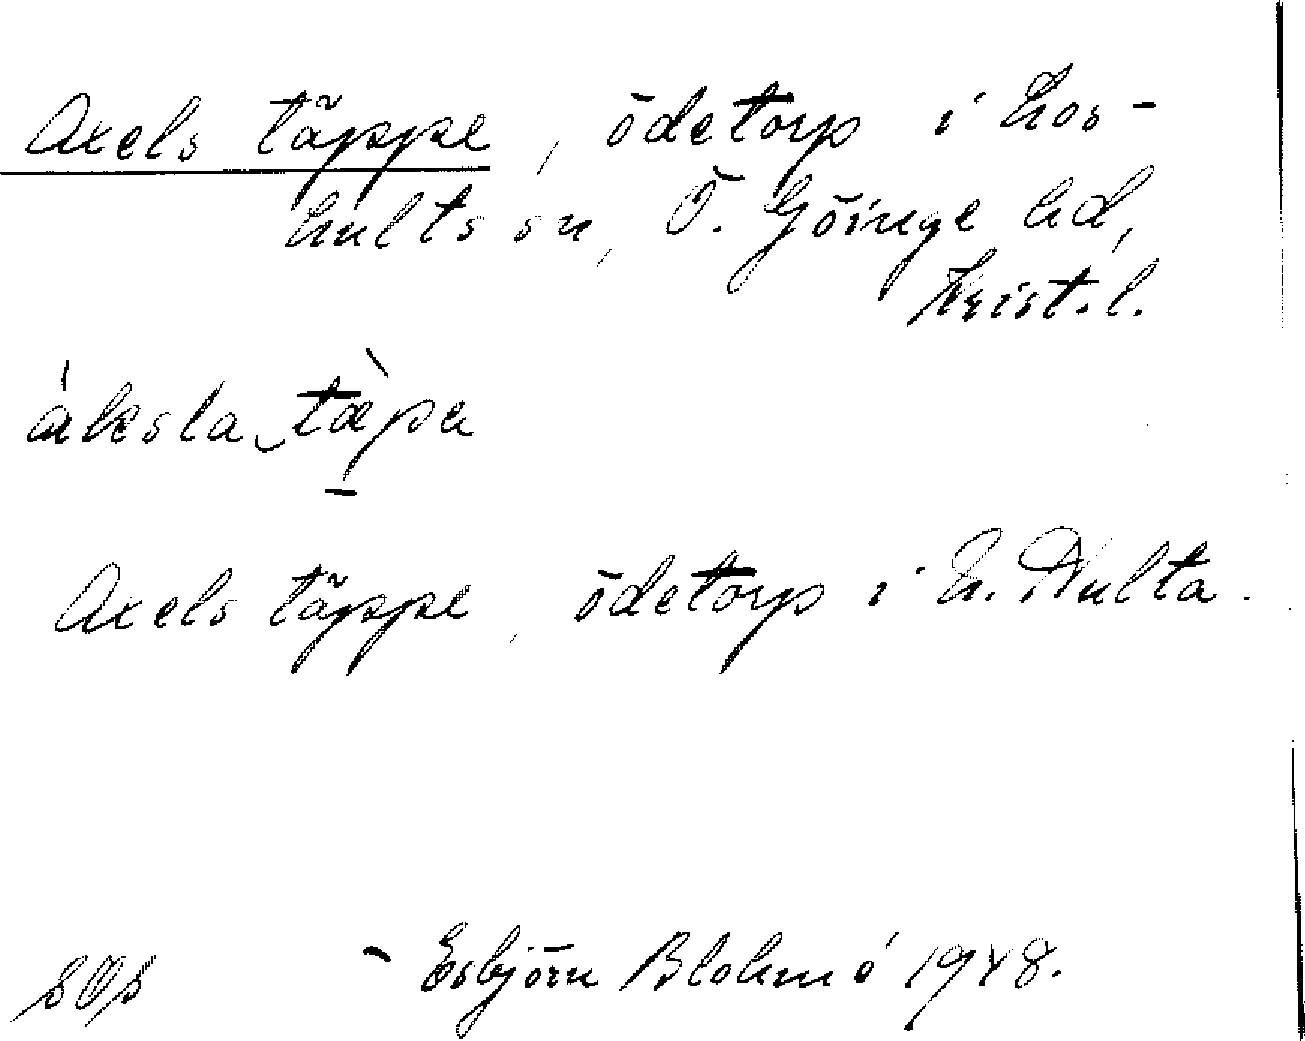 Axels täppe, ödetorp i Los-
hults sn, Ö. Göinge hd,
Krist. l.
àksla tæ̀pa
Axels täppe, ödetorp i L. Hulta.
Esbjörn Blohmé 1948.